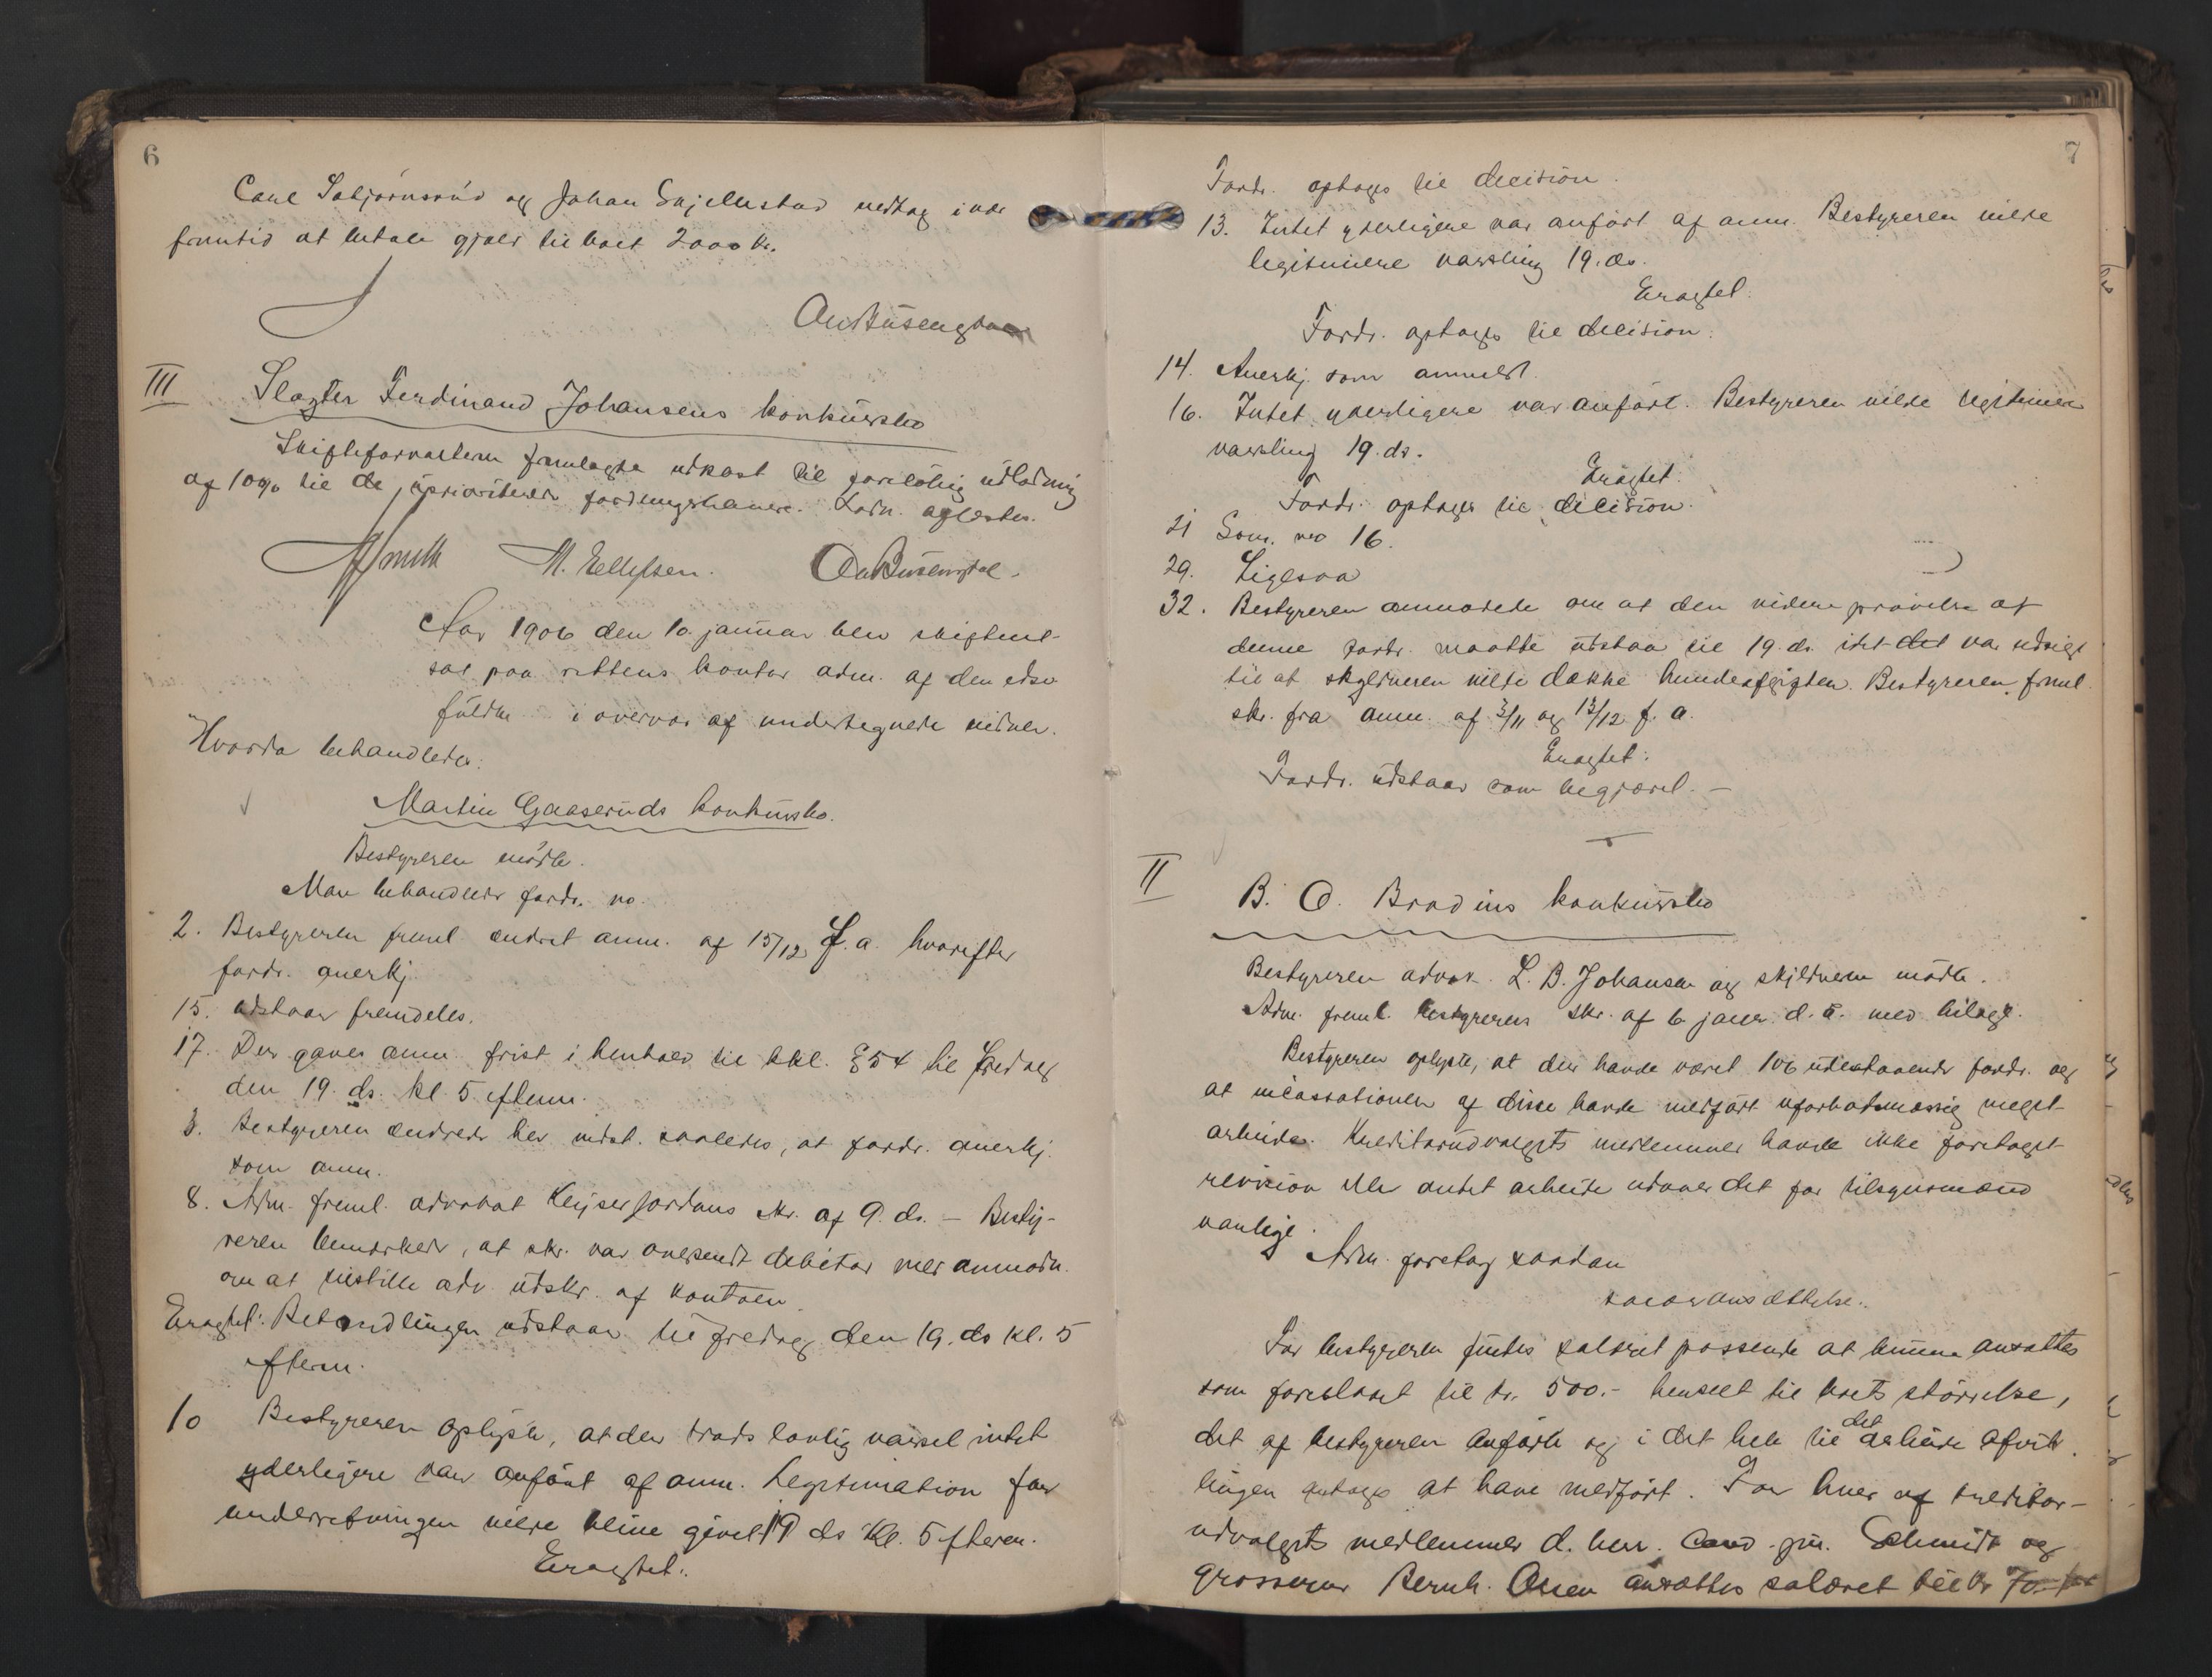 6
Carl Sobjørnsrud og Johan Gjellestad vedtog inde
fremtid at betale gjæld til boet 2000 kr.
III
Slagter Ferdinand Johansens konkursbo
Skifteforvalteren fremlagde udkast til foreløbig utlodning
af 10% til de uprioriterede fordringshavere. Lodn. oplæstes.
M. Ellefsen.
Aar 1906 den 10. januar blev skifteret-
sat paa rettens kontor adm. af den edsv.
fuldm. i overvær af undertegnede vidner.
Hvorda behandledes:
Martin Gaaseruds konkursbo.
Bestyreren mødte.
Man behandlede fordr. no.
2. Bestyreren freml. ændret anm. af 15/12 f.a. hvorefter
fordr. anerkj.
15. utstaar fremdeles.
17. Der gaves anm. frist i henhold til kkl. §54 til fredag
den 19. ds. kl. 5 efterm.
3. Bestyreren endrede her indst. saaledes, at fordr. anerkj.
som anm.
8. Adm. freml. advokat Keyser Jordans skr. af 9. ds. – Besty-
reren bemærkede, at skr. var oversendt debitor med anmodn.
om at tilstille adv. utskr. af kontoen.
Eragtet: Behandlingen utstaar til fredag den 19. ds kl. 5
efterm.
10 Bestyreren oplyste, at der trods lovlig varsel intet
yderligere var anført af anm. Legitimation for
underretningen vilde blive givet 19 ds kl. 5 efterm.
Eragtet:
7
Fordr. optages til decision.
13. Intet yderligere var anført af anm. Bestyreren vilde
legitimere varsling 19. ds.
Eragtet:
Fordr. optages til decision.
14. Anerkj. som anmeldt.
16. Intet yderligere var anført. Bestyreren vilde legitimere
varsling 19. ds.
Eragtet:
Fordr. optages til decision.
21 Som ved 16.
29. Ligesaa
32. Bestyreren anmodede om at den videre prøvelse af
denne fordr. maatte utstaa til 19. ds. idet det var udsigt
til at skyldneren vilde dække hundeafgiften. Bestyreren freml.
skr. fra anm. af 3/11 og 13/12 f. a.
Eragtet:
Fordr. utstaar som begjæret. –
II
B. O. Brodins konkursbo
Bestyreren advok. L. B. Johansen og skyldneren mødte.
Adm. freml. bestyrerens skr. af 6 januar d. a. med bilage.
Bestyreren oplyste, at der havde været 106 utestaaende fordr. og
at incassationen af disse havde medført uforholdsmæssig meget
arbeide. Kreditorudvalgets medlemmer havde ikke foretaget
revision eller andet arbeide udover det for tilsynsmænd
vanlige.
Adm. foretog saadan
salæransættelse:
For bestyreren findes salæret passende at kunne ansættes
som foreslaaet til kr. 500.- henseet til boets størrelse,
det af bestyreren anførte og i det hele til det arbeide afvik-
lingen antages at have medført. For hver af kreditor-
udvalgets medlemmer d. herr. cand. jur. Schmidt og
grosserer Bernh. Olsen ansættes salæret til kr 70.-